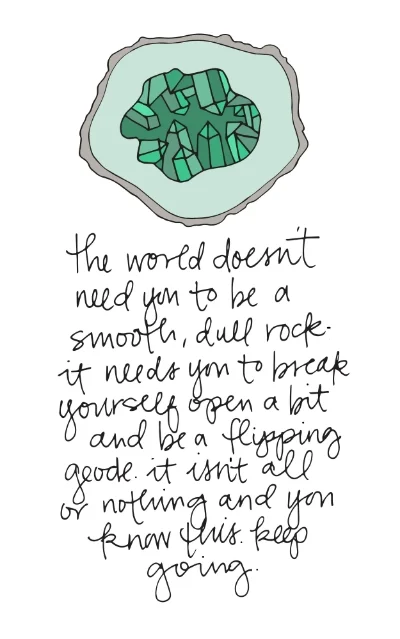 the world doesn't
need you to be a
smooth, dull rock.
it needs you to break
yourself open a bit
and be a flipping
geode. it isn't all
or nothing and you
know this. keep
going.